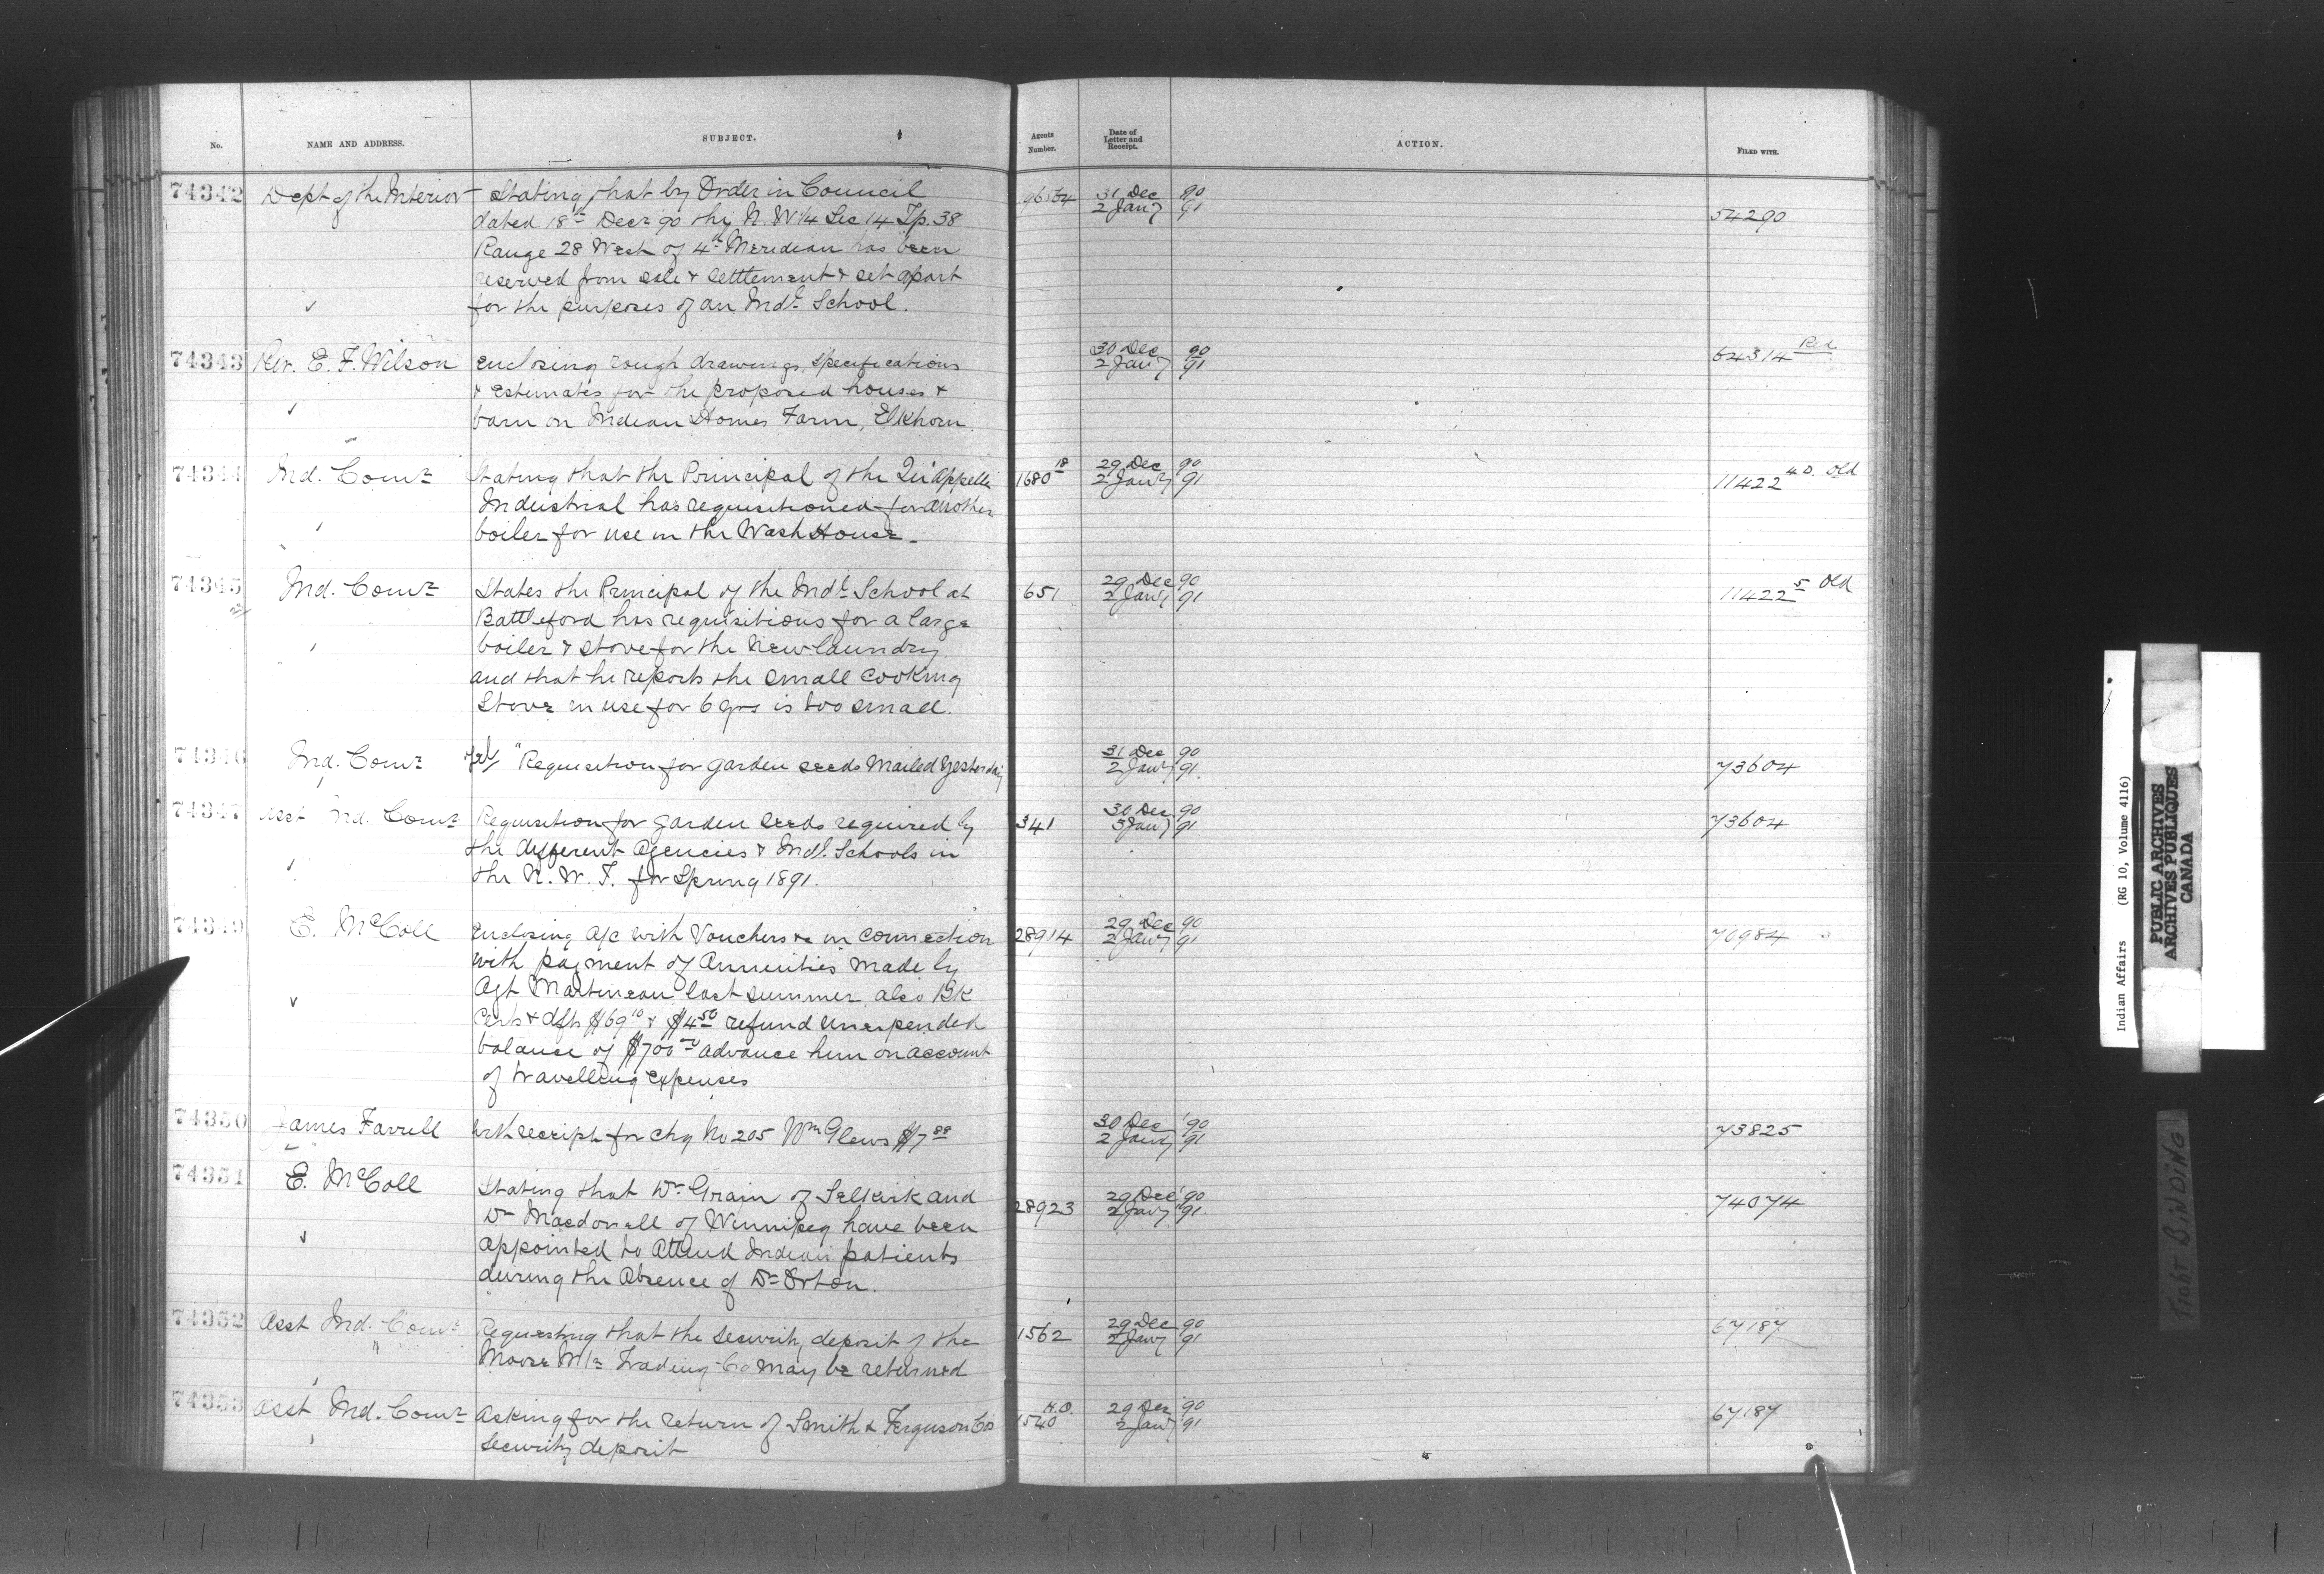 No. NAME AND ADDRESS. SUBJECT. Agents Number. Date of Letter and Receipt. ACTION. FILED WITH.
74342 Dept of the Interior Stating that by Order in Council 31 Dec 90
dated 18th Decr 90 the N.W 1/4 Sec 14 Tp. 38 2 Jany 91 54290
Range 28 West of 4th Meridian has been
reserved from sale & settlement & set apart
for the purposes of an Indl School.
74343 Rev. E. F. Wilson enclosing rough drawings, specifications 30 Dec 90 64314 Red
& estimates for the proposed houses & 2 Jany 91
barn on Indian Homes Farm, Elkhorn.
74344 Ind. Comr Stating that the Principal of the Qu'Appelle 1680 18 29 Dec 90 11422 4D. Old
Industrial has requisitioned for another 2 Jany 91
boiler for use in the Wash House.
74345 Ind. Comr States the Principal of the Indl School at 651 29 Dec 90 11422 5 Old
Battleford has requisitions for a large 2 Jany 91
boiler & stove for the New laundry
and that he reports the small cooking
Stove in use for 6 yrs is too small.
74346 Ind. Comr Tel "Requisition for garden seeds Mailed Yesterday 31 Dec 90 73604
2 Jany 91
74347 Asst Ind. Comr Requisition for garden seeds required by 341 30 Dec 90 73604
the different Agencies & Indl. Schools in 3 Jany 91
the N. W. T. for Spring 1891.
74349 E. McColl Enclosing a/c with Vouchers &c in connection 28914 29 Dec 90 70984
with payment of Annuities made by 2 Jany 91
Agt Martineau last summer, also Bk
Certs & dfts $69 10 & $4 50 refund unexpended
balance of $700 00 advance him on account
of travelling expenses
74350 James Farrell With receipt for chq No 205 Wm Glews $7 30 Dec '90 73825
2 Jany 91
74351 E. McColl Stating that Dr Grain of Selkirk and 28923 29 Dec '90 74074
Dr Macdonell of Winnipeg have been 2 Jany 91
appointed to Attend Indian patients
during the Absence of Dr Orton.
74352 Asst Ind. Comr Requesting that the security deposit of the 1562 29 Dec 90 67187
Moose Mtn Trading Co may be returned 2 Jany 91
74353 Asst Ind. Comr Asking for the return of Smith & Ferguson Co's H.O. 1540 29 Dec 90 67187
Security deposit 2 Jany 91
Indian Affairs (RG 10, Volume 4116)
PUBLIC ARCHIVES
ARCHIVES PUBLIQUES
CANADA
TIGHT BINDING